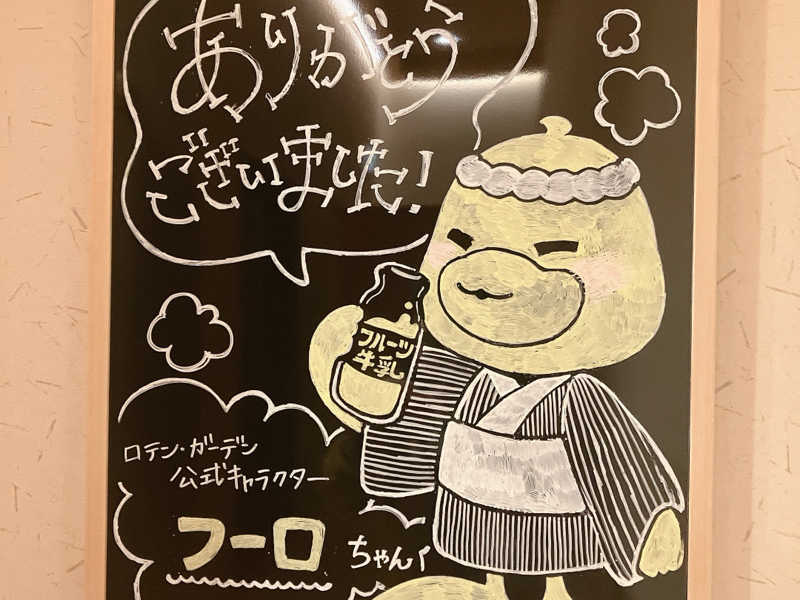 ありがとう
ございました!
フルーツ
牛乳
ロテン・ガーデン
公式キャラクター
フーロ ちゃん